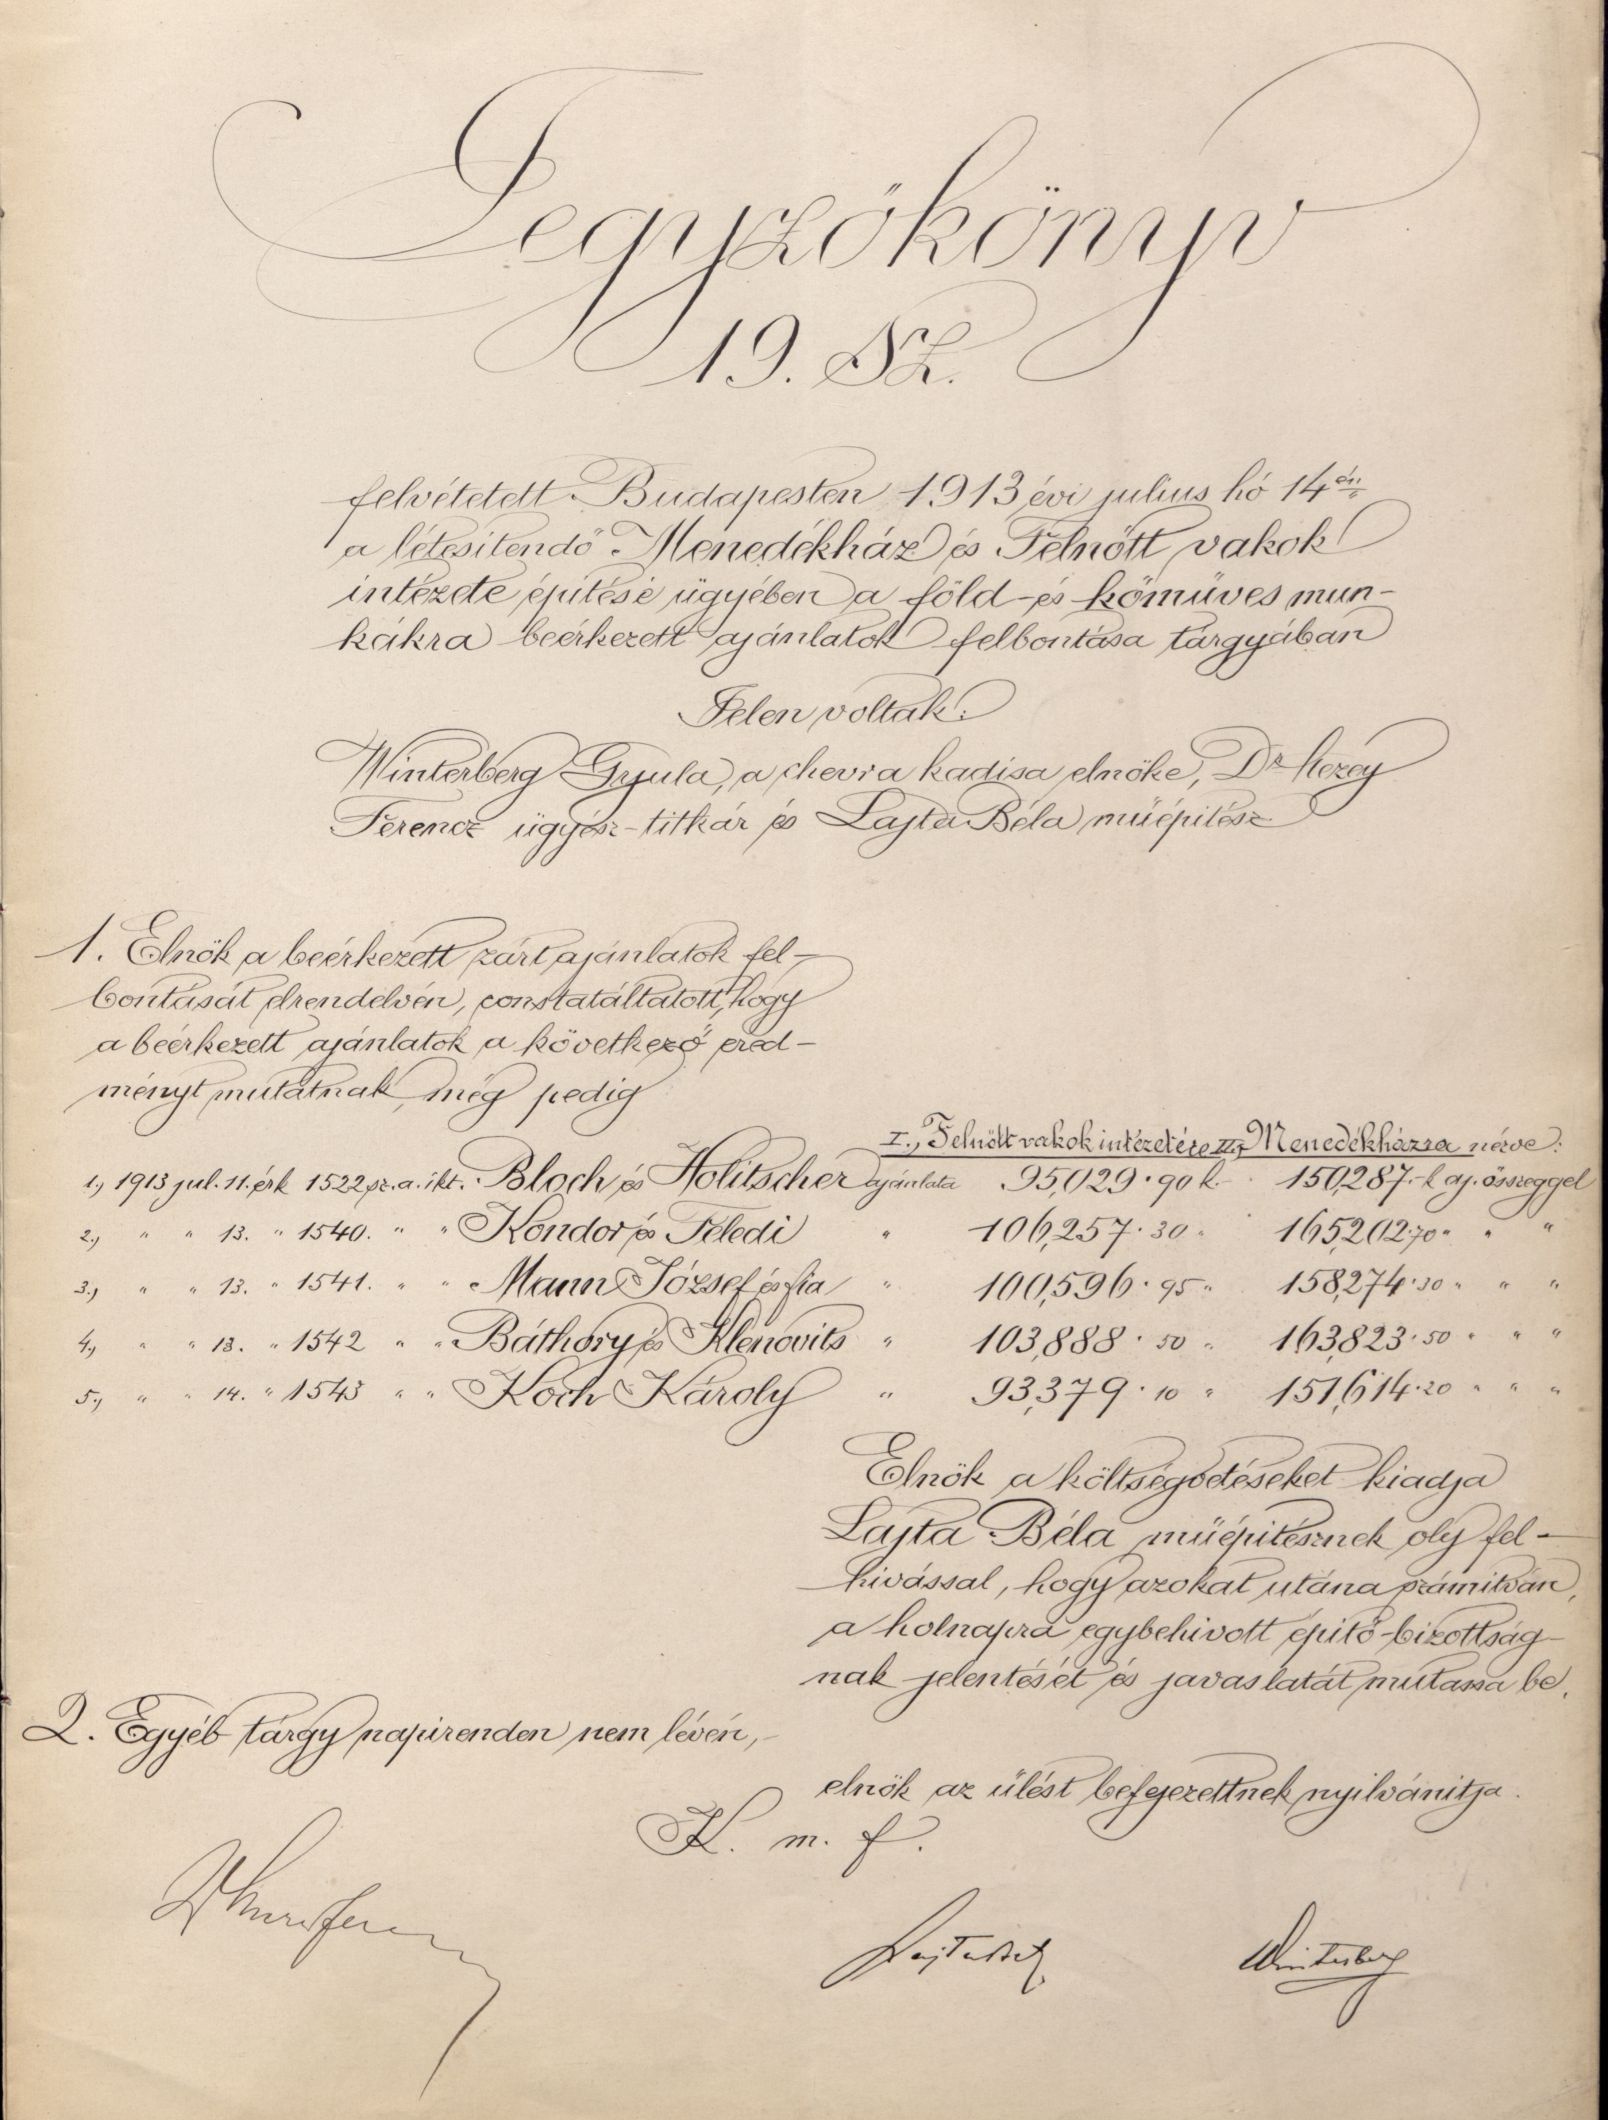 Jegyzőkönyv
19. Sz.
felvétetett Budapesten 1913 évi julius hó 14 én
a létesitendő Menedékház és Felnőtt vakok
intézete épitése ügyében a föld- és kőmüves mun-
kákra beérkezett ajánlatok felbontása tárgyában
Jelen voltak:
Winterberg Gyula, a chevra kadisa elnöke, Dr Mezey
Ferencz ügyész-titkár és Lajta Béla müépitész
1. Elnök a beérkezett zárt ajánlatok fel-
bontását elrendelvén, constatáltatott, hogy
a beérkezett ajánlatok a következő ered-
ményt mutatnak, még pedig
I., Felnőtt vakok intézetére II., Menedékházra nézve:
1., 1913 jul. 11. érk 1522 sz. a. ikt. Bloch és Holitscher ajánlata 95,029·90 k. 150,287.- k aj. összeggel
2., " " 13. " 1540. " " Kondor és Feledi " 106,257·30 " 165,202·70 " " "
3., " " 13. " 1541. " " Mann József és fia " 100,596·95 " 158,274·30 " " "
4., " " 13. " 1542 " " Báthory és Klenovits " 103,888·50 " 163,823·50 " " "
5., " " 14. " 1543 " " Koch Károly " 93,379·10 " 151,614·20 " " "
Elnök a költségvetéseket kiadja
Lajta Béla müépitésznek oly fel-
hivással, hogy azokat utána számitván,
a holnapra egybehivott épitő-bizottság-
nak jelentését és javaslatát mutassa be.
2. Egyéb tárgy napirenden nem lévén,-
elnök az ülést befejezettnek nyilvánitja.
K. m. f.
Lajta Béla Winterberg